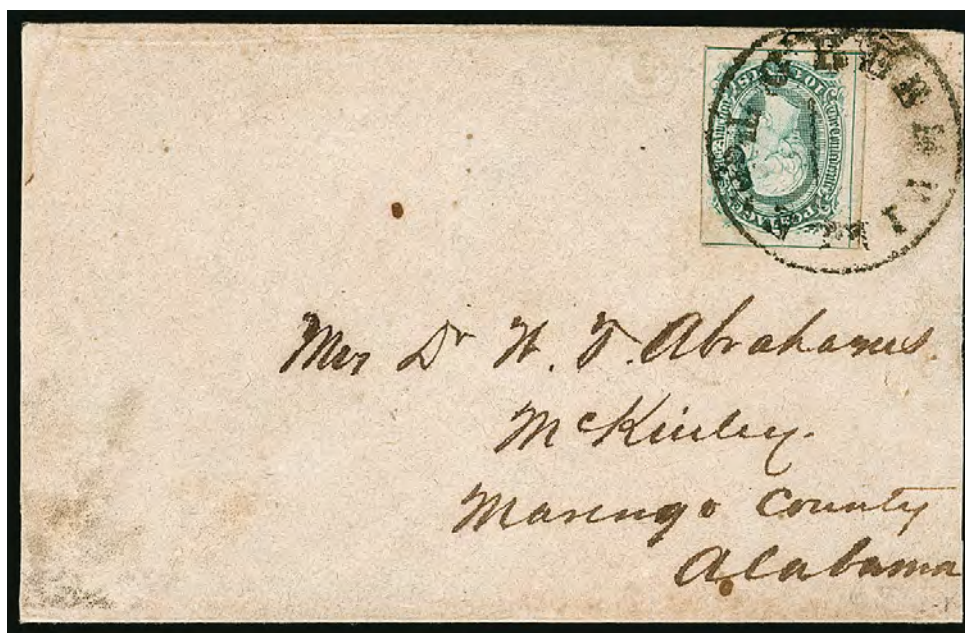 POSTAGE
Mrs Dr W. T. Abrahams.
McKinley.
Marengo County
Alabama